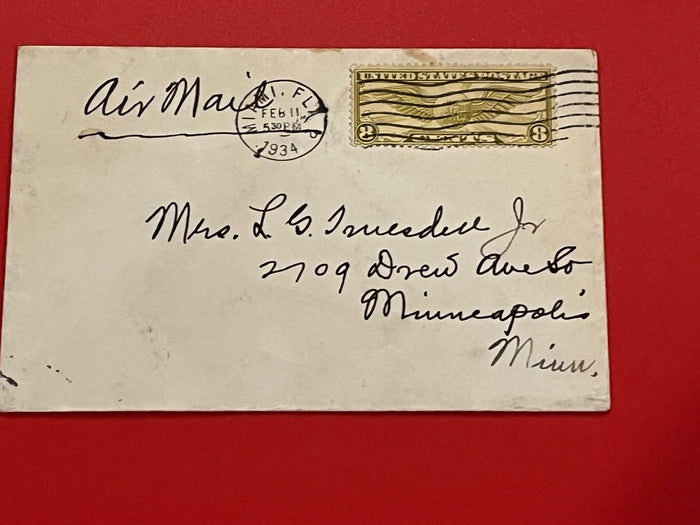 Air Mail
MIAMI, FLA.
FEB 11
5 30 PM
1934
UNITED STATES POSTAGE
8 8
Mrs. L. G. Truesdell Jr
2709 Drew Ave So
Minneapolis
Minn.